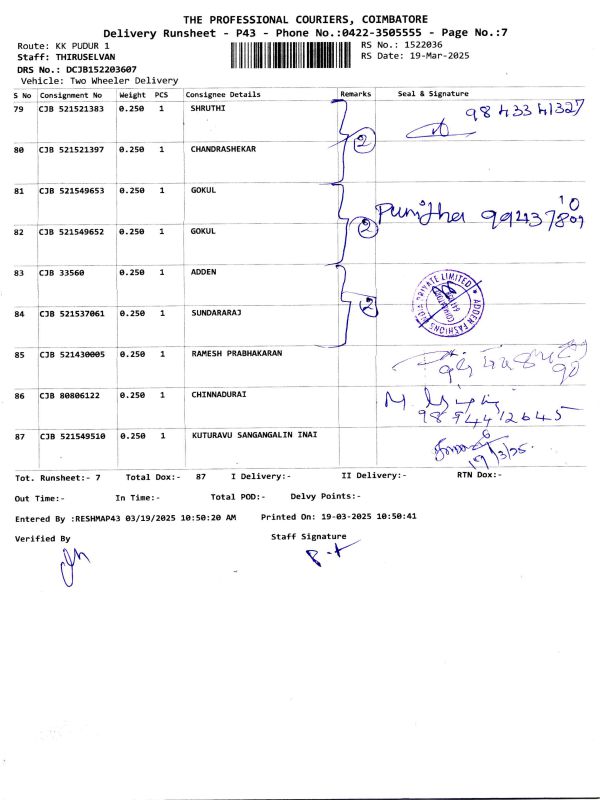 THE PROFESSIONAL COURIERS, COIMBATORE
Delivery Runsheet - P43 - Phone No.:0422-3505555 - Page No.:7
Route: KK PUDUR 1 RS No.: 1522036
Staff: THIRUSELVAN RS Date: 19-Mar-2025
DRS No.: DCJB152203607
Vehicle: Two Wheeler Delivery
S No Consignment No Weight PCS Consignee Details Remarks Seal & Signature
79 CJB 521521383 0.250 1 SHRUTHI 9843341327
80 CJB 521521397 0.250 1 CHANDRASHEKAR 2
81 CJB 521549653 0.250 1 GOKUL
Punitha 9943780910
82 CJB 521549652 0.250 1 GOKUL 2
83 CJB 33560 0.250 1 ADDEN
ADDEN FASHIONS INDIA PRIVATE LIMITED
84 CJB 521537061 0.250 1 SUNDARARAJ 2
85 CJB 521430005 0.250 1 RAMESH PRABHAKARAN
86 CJB 80806122 0.250 1 CHINNADURAI M
9894412645
87 CJB 521549510 0.250 1 KUTURAVU SANGANGALIN INAI
19/3/25.
Tot. Runsheet:- 7 Total Dox:- 87 I Delivery:- II Delivery:- RTN Dox:-
Out Time:- In Time:- Total POD:- Delvy Points:-
Entered By :RESHMAP43 03/19/2025 10:50:20 AM Printed On: 19-03-2025 10:50:41
Verified By Staff Signature